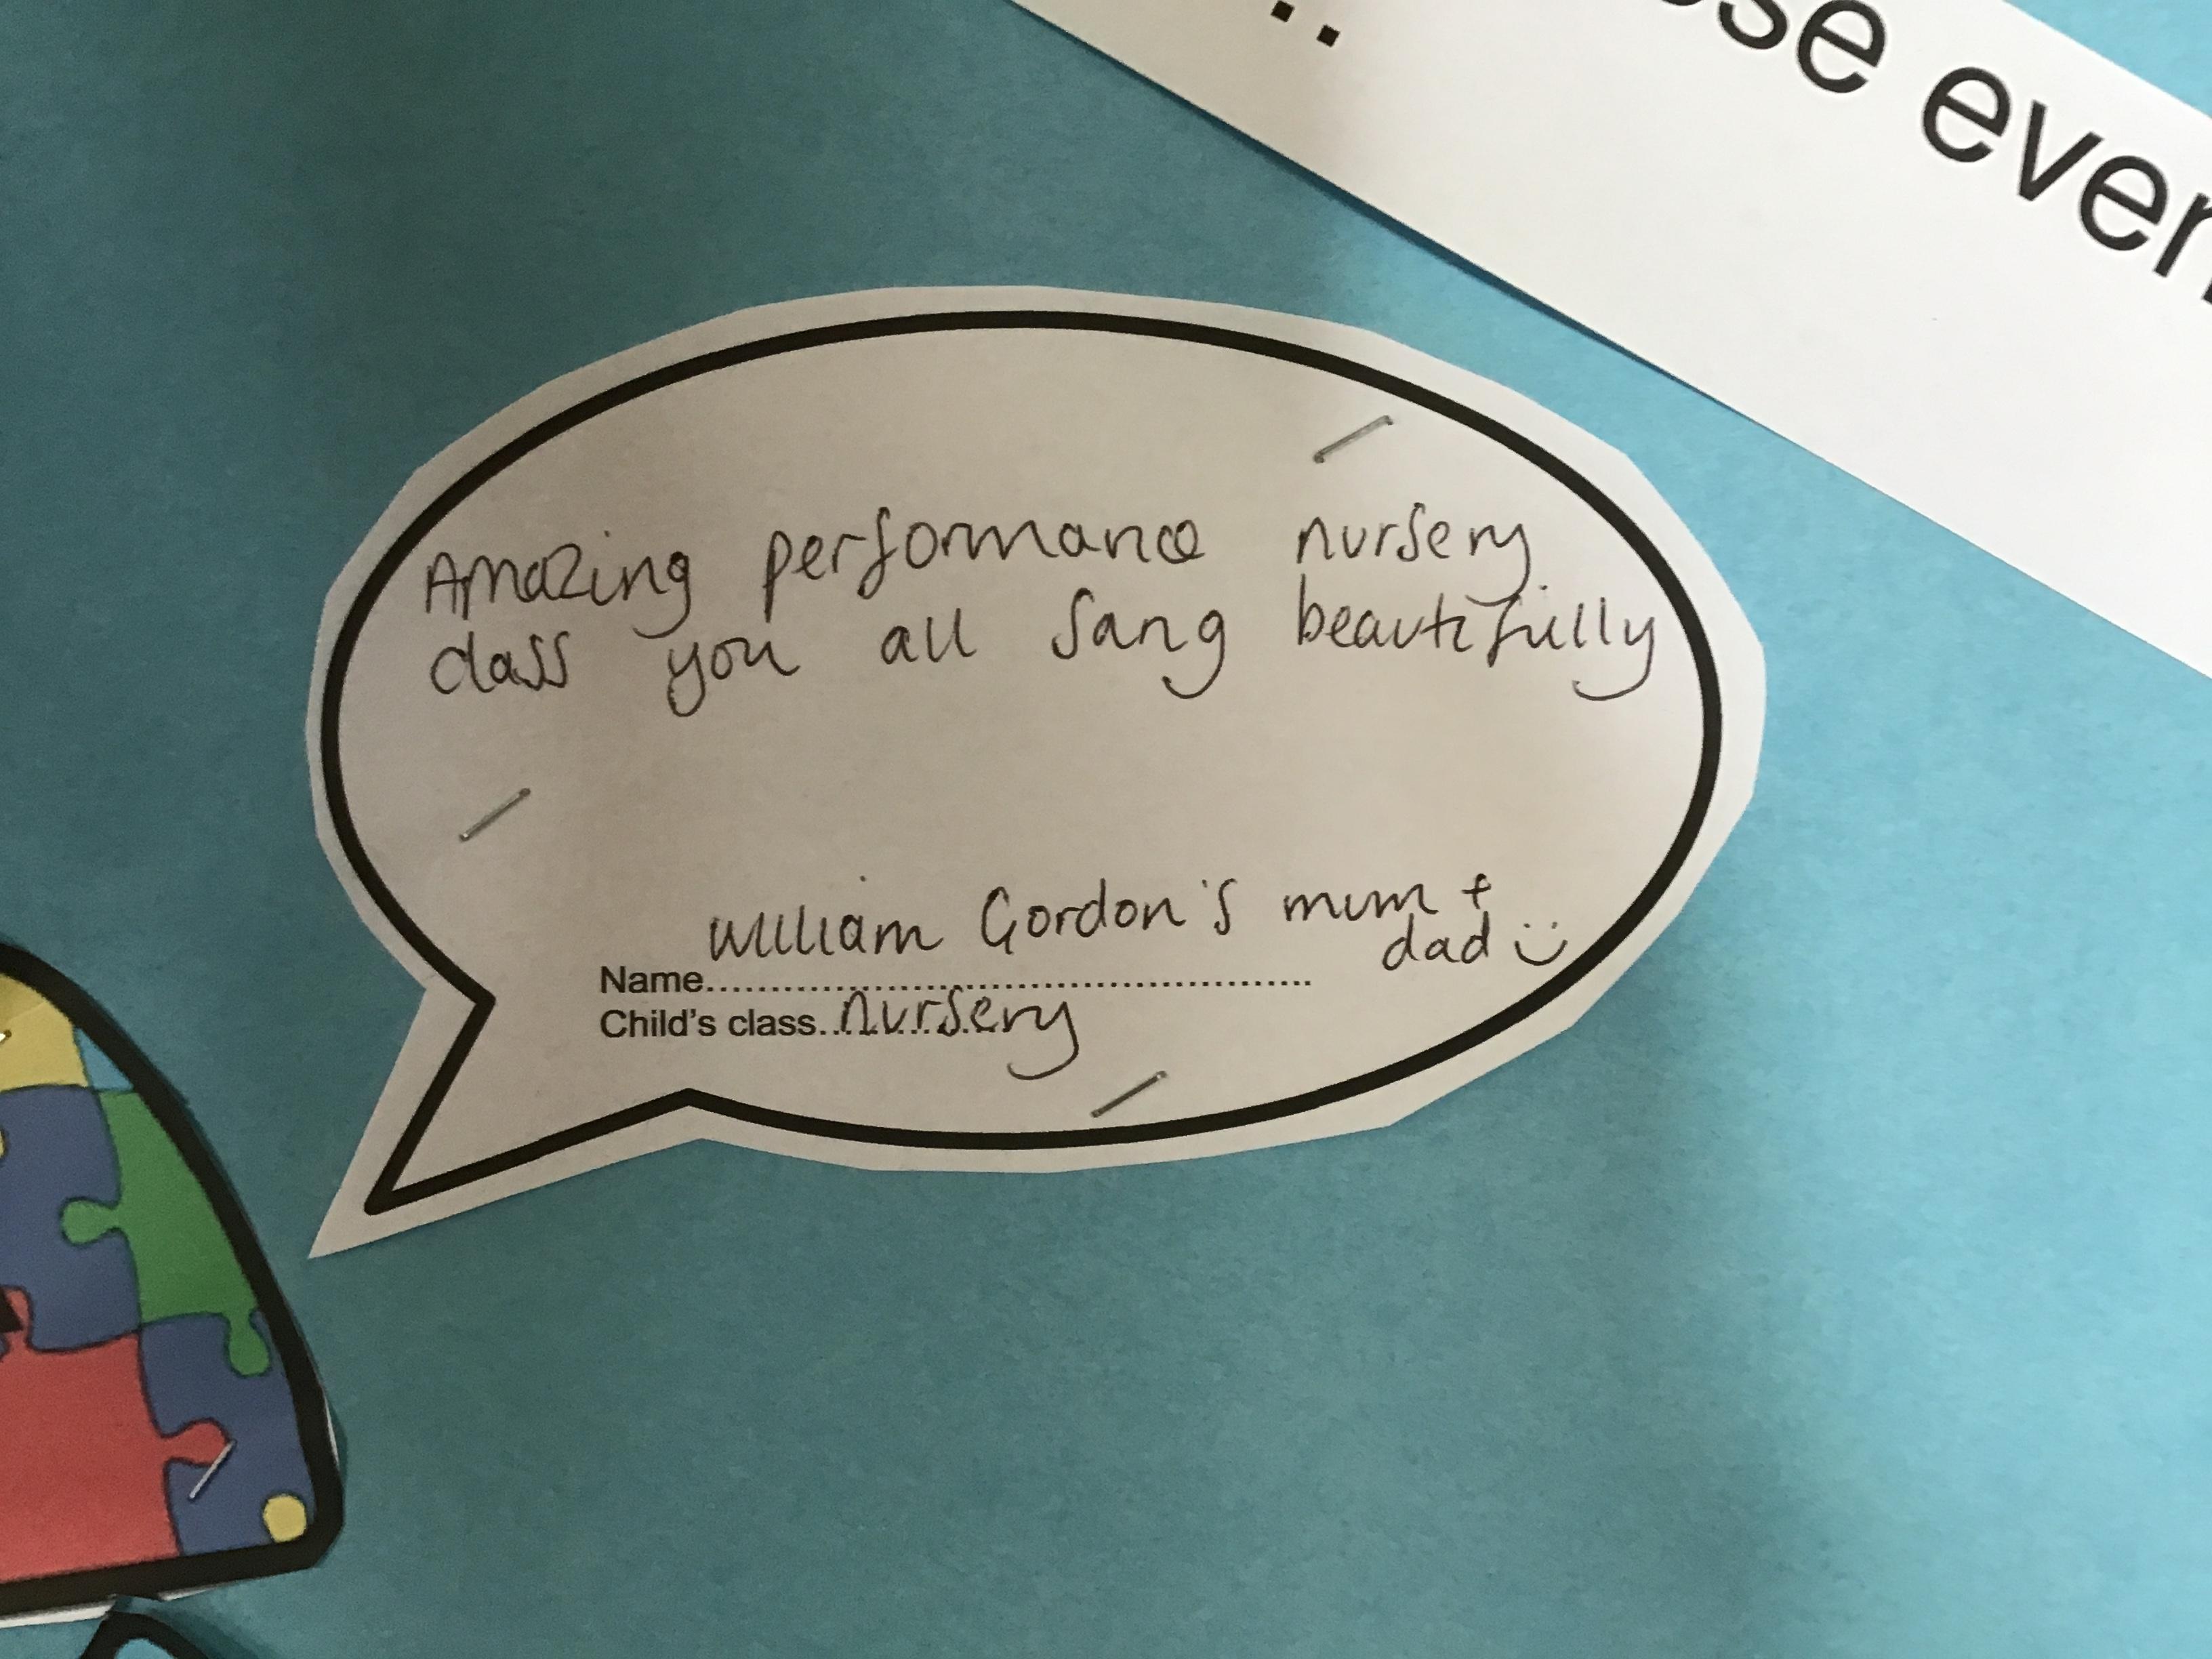 ..
se even
Amazing performance nursery
class you all sang beautifully
William Gordon's mum +
dad :)
Name.....................................................
Child's class..nursery